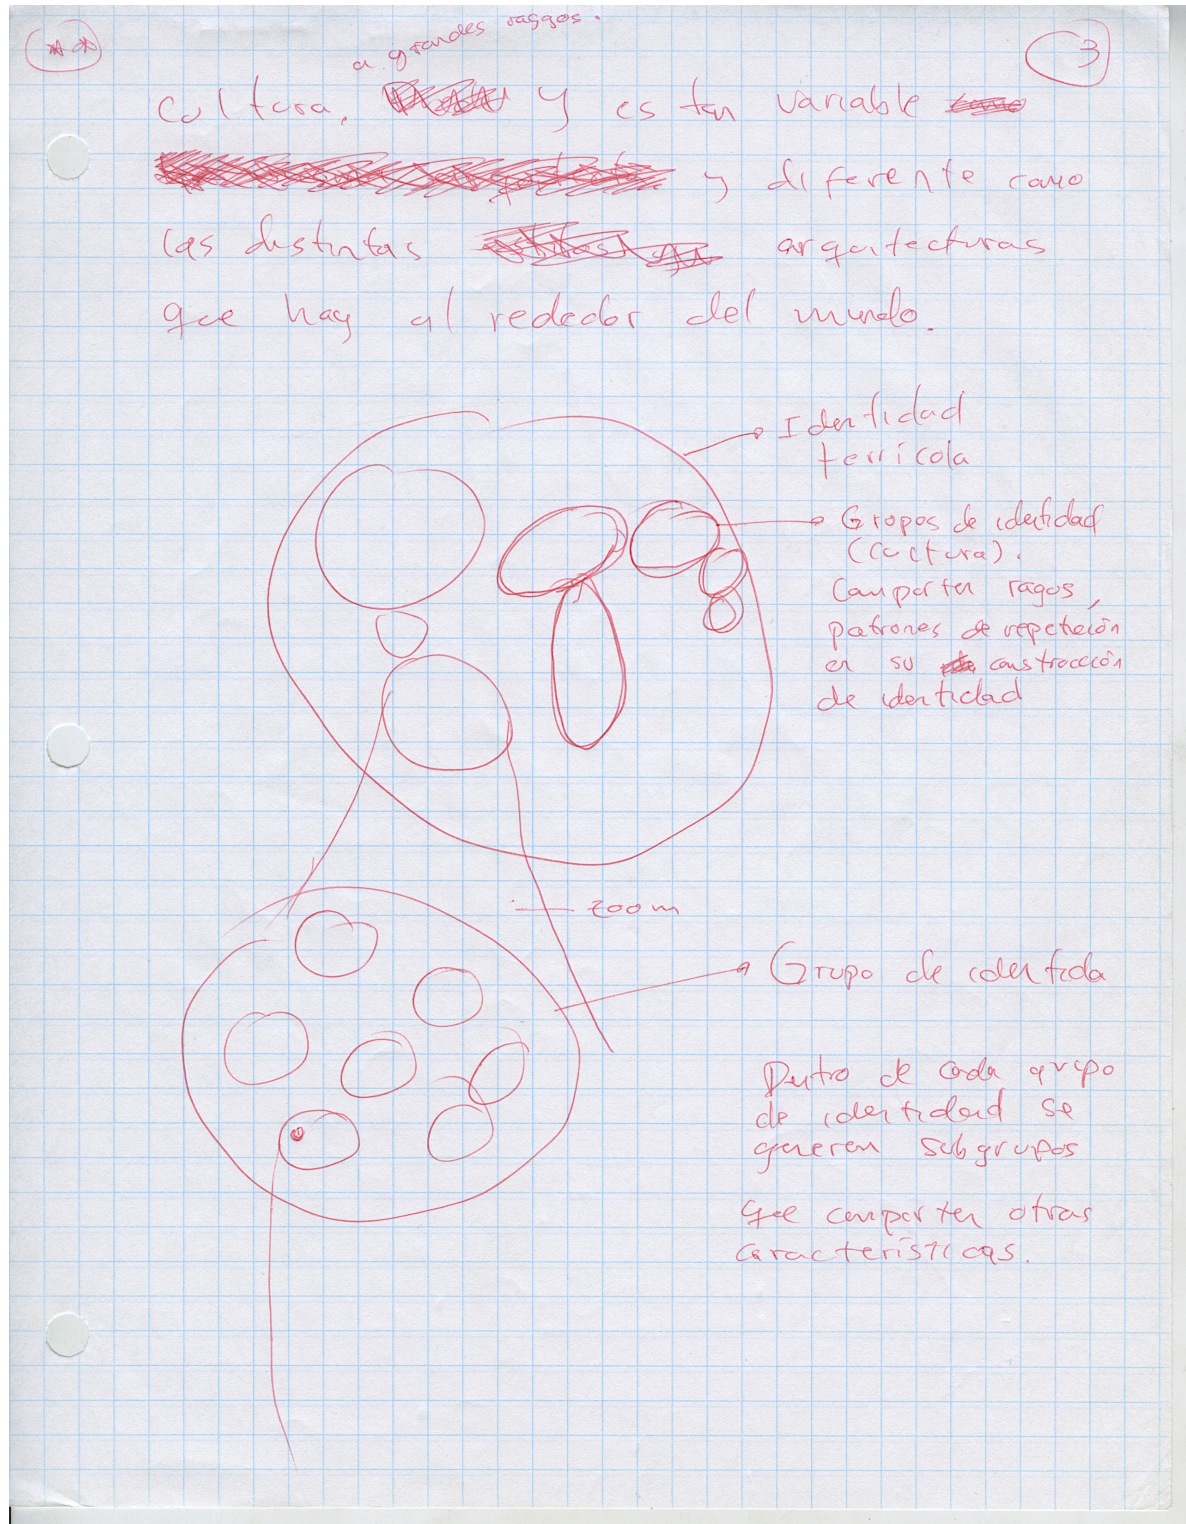 **
3
a grandes raggos.
Cultura, y es tan variable
y diferente como
las distintas arquitecturas
que hay al rededor del mundo.
Identidad
terrícola
Grupos de identidad
(cultura).
Comparten ragos,
patrones de repetición
en su construcción
de identidad
zoom
Grupo de identida
Dentro de cada grupo
de identidad se
generen subgrupos
que comparten otras
características.